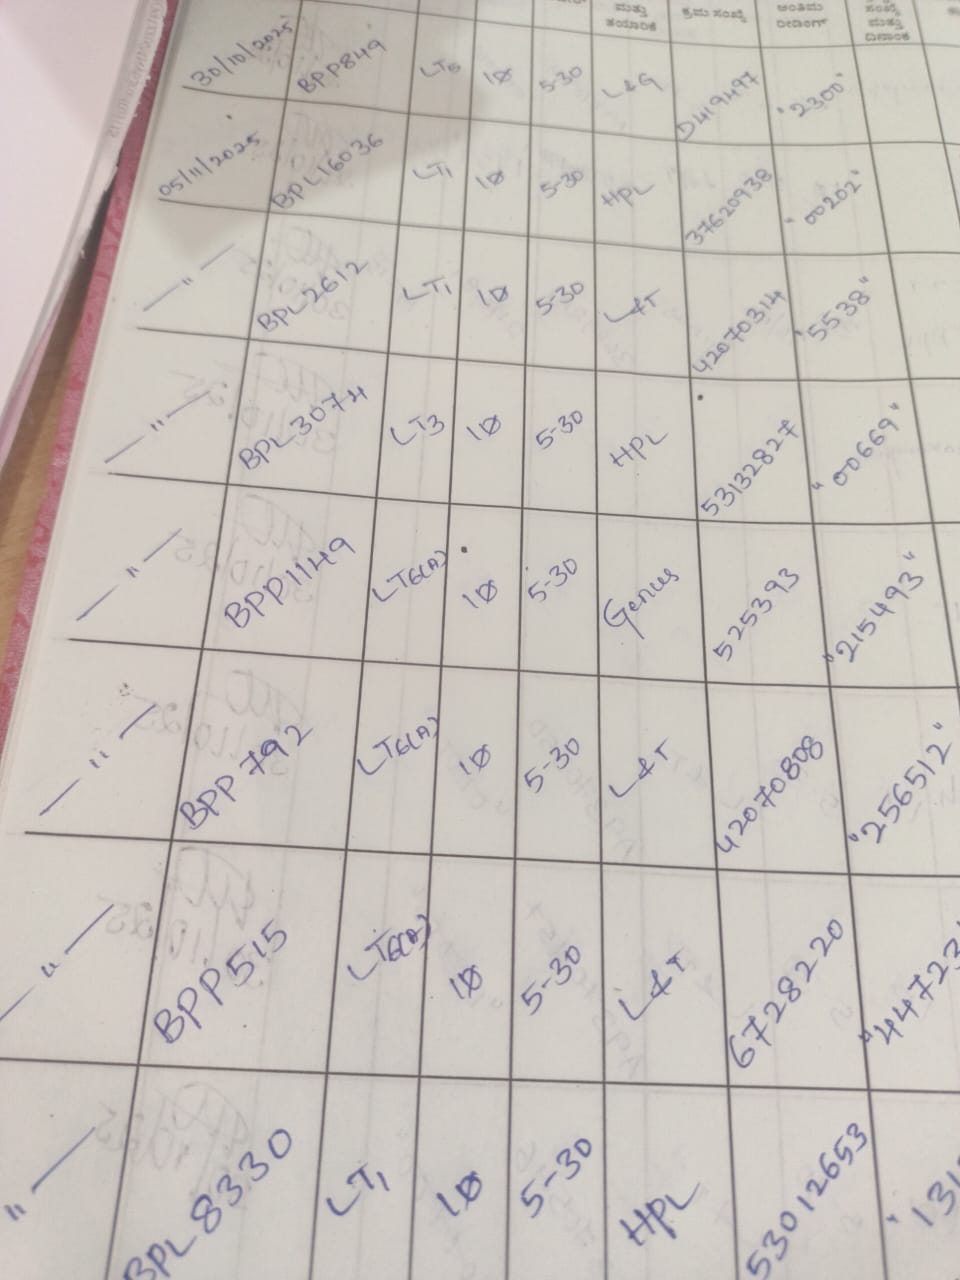 ಮತ್ತು ತಯಾರಿಕೆ ಕ್ರಮ ಸಂಖ್ಯೆ ಅಂತಿಮ ರೀಡಿಂಗ್ ಸಂಖ್ಯೆ ಮತ್ತು ದಿನಾಂಕ
30/10/2025 BPP849 LT6 1Ø 5-30 L&G D419497 "2300"
05/11/2025 BPLT6036 LT1 1Ø 5-30 HPL 37620938 "00202"
—"— BPL2612 LT1 1Ø 5-30 L&T 42070314 "5538"
—"— BPL3074 LT3 1Ø 5-30 HPL 53132827 "00669"
—"— BPP1149 LT6(A) 1Ø 5-30 Genus 525393 "215493"
—"— BPP792 LT6(A) 1Ø 5-30 L&T 42070808 "256512"
—"— BPP515 LT6(A) 1Ø 5-30 L&T 6728220 "44723
"— BPL8330 LT1 1Ø 5-30 HPL 53012653 "131